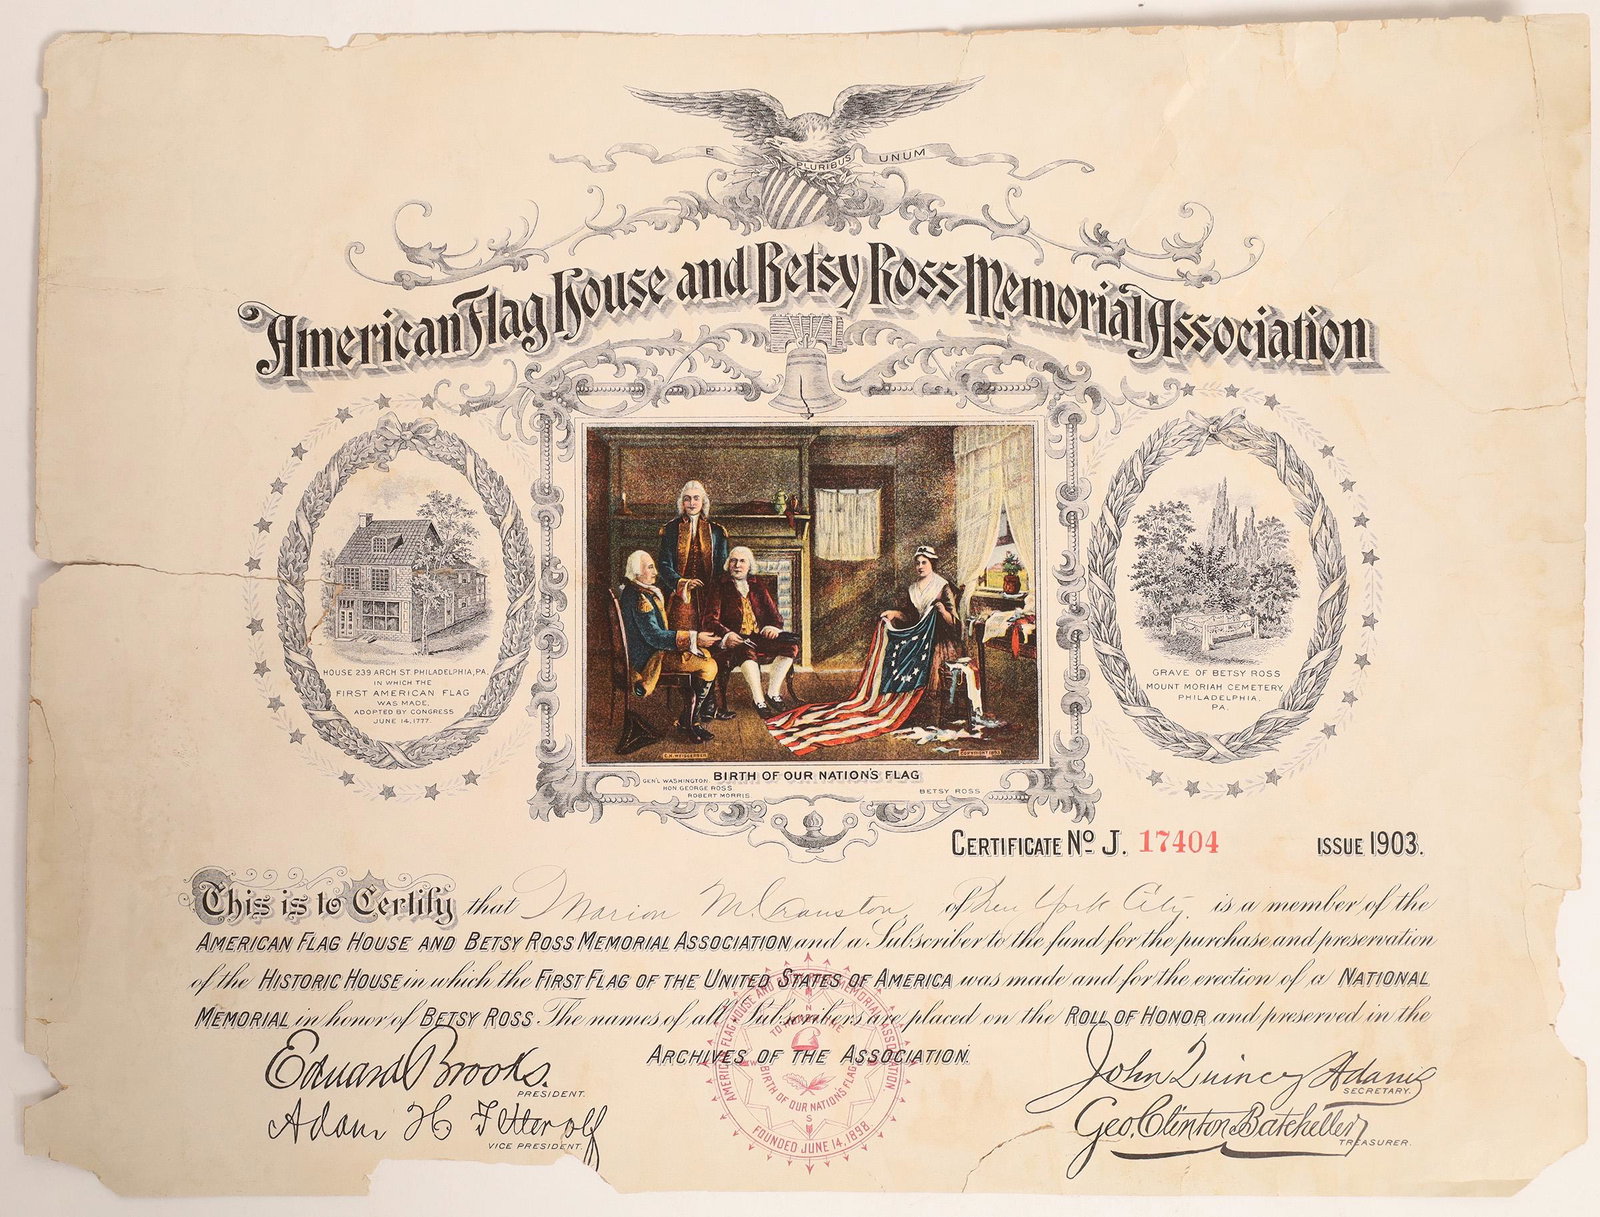 E PLURIBUS UNUM
American Flag House and Betsy Ross Memorial Association
HOUSE 239 ARCH ST. PHILADELPHIA, PA.
IN WHICH THE
FIRST AMERICAN FLAG
WAS MADE.
ADOPTED BY CONGRESS
JUNE 14, 1777.
C.H. WEISGERBER
COPYRIGHT 1903
GRAVE OF BETSY ROSS
MOUNT MORIAH CEMETERY,
PHILADELPHIA,
PA.
BIRTH OF OUR NATION'S FLAG
GEN'L WASHINGTON.
HON. GEORGE ROSS.
ROBERT MORRIS.
BETSY ROSS
CERTIFICATE No J. 17404 ISSUE 1903.
This is to Certify that Marion McCranston, of New York City, is a member of the
AMERICAN FLAG HOUSE AND BETSY ROSS MEMORIAL ASSOCIATION and a Subscriber to the fund for the purchase and preservation
of the HISTORIC HOUSE in which the FIRST FLAG OF THE UNITED STATES OF AMERICA was made and for the erection of a NATIONAL
MEMORIAL in honor of BETSY ROSS. The names of all Subscribers are placed on the ROLL OF HONOR and preserved in the
ARCHIVES OF THE ASSOCIATION.
Edward Brooks.
PRESIDENT.
Adam H Fetterolf
VICE PRESIDENT.
AMERICAN FLAG HOUSE AND MEMORIAL ASSOCIATION
BIRTH OF OUR NATION'S FLAG
FOUNDED JUNE 14, 1898
John Quincy Adams
SECRETARY.
Geo. Clinton Batcheller
TREASURER.